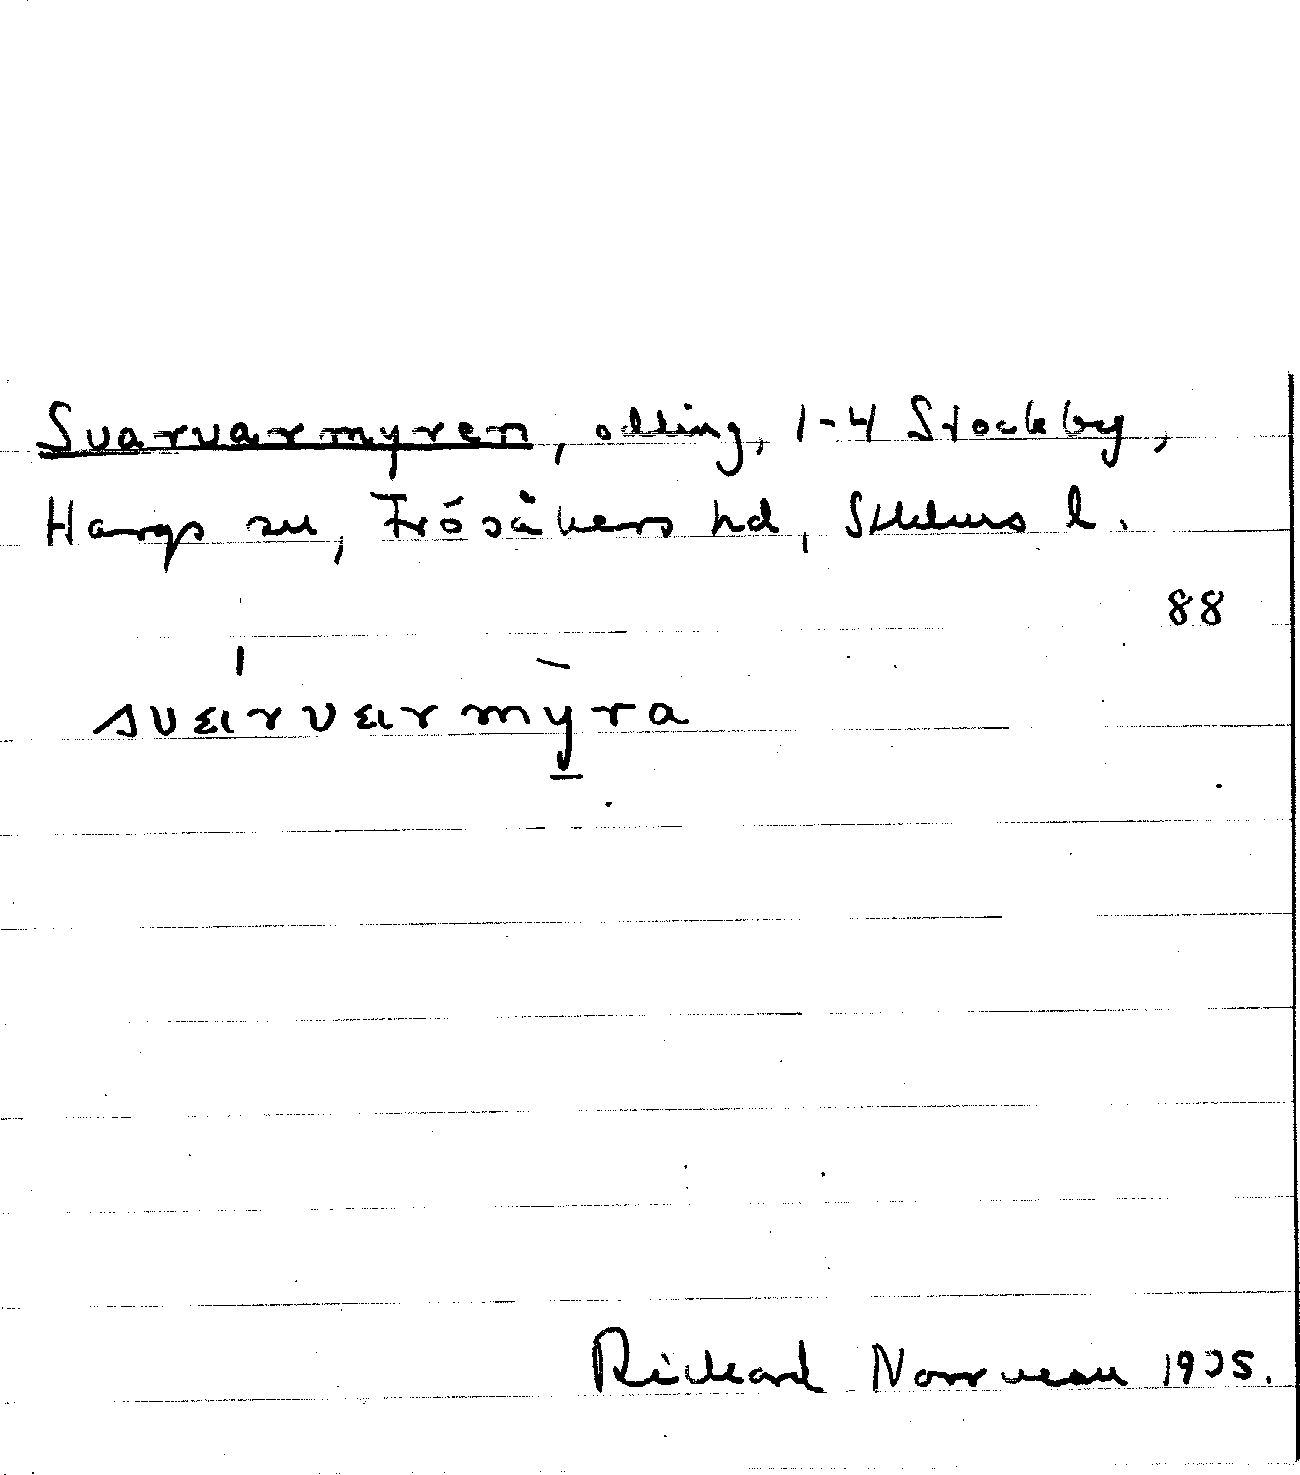 Svarvarmyren, odling, 1-4 Stockby,
Hargs sn, Frösåkers hd, Sthlms l.
88
svarvarmy̱ra
Rickard Norrman 1935.